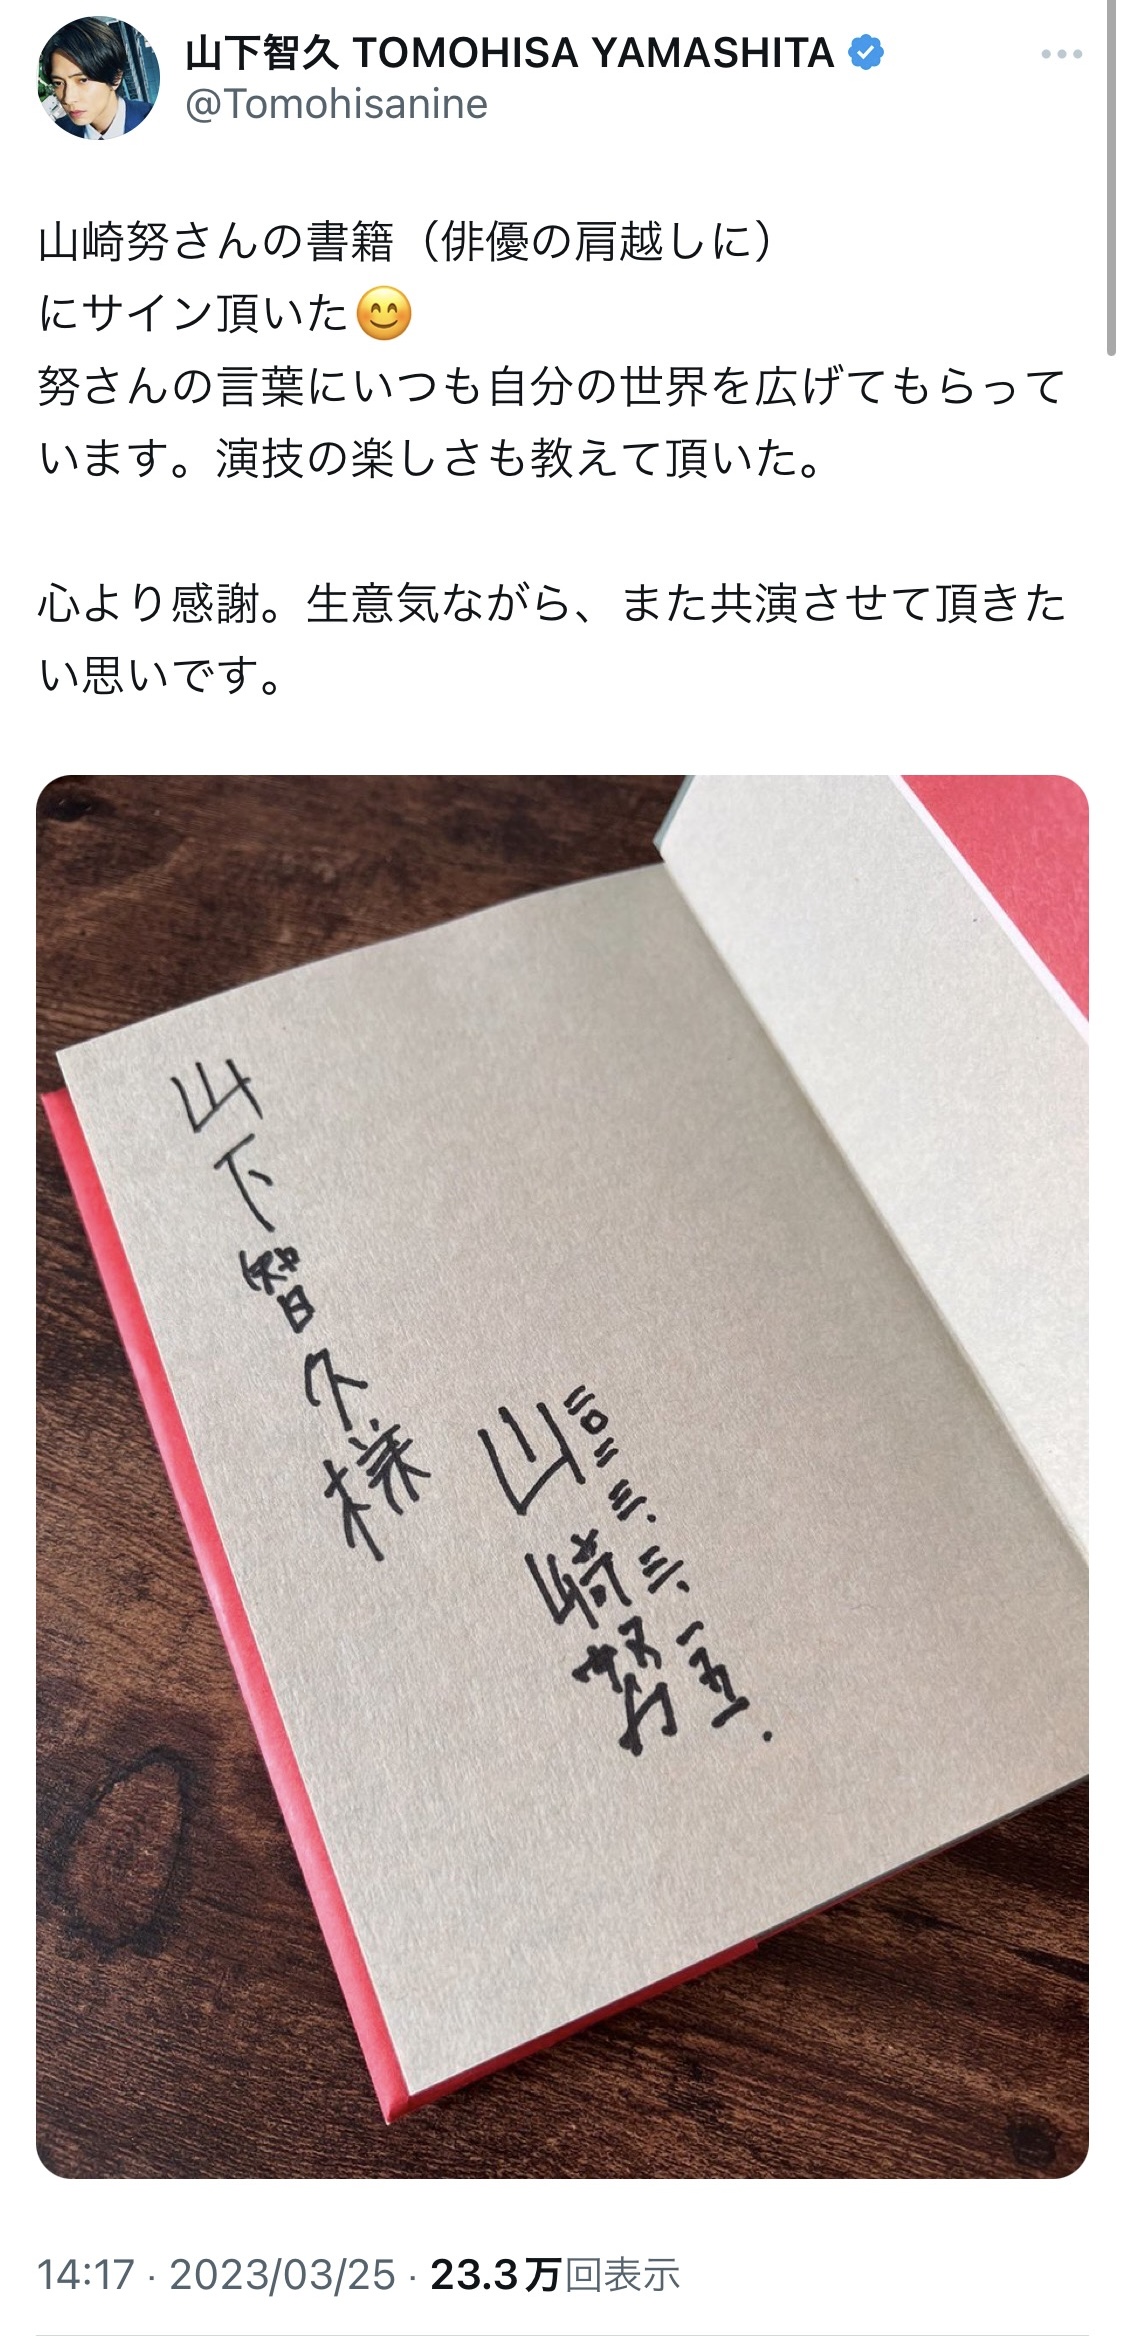 山下智久 TOMOHISA YAMASHITA
@Tomohisanine
山崎努さんの書籍（俳優の肩越しに）
にサイン頂いた😊
努さんの言葉にいつも自分の世界を広げてもらって
います。演技の楽しさも教えて頂いた。
心より感謝。生意気ながら、また共演させて頂きた
い思いです。
山下智久様
山崎努
二〇二三.三.一五.
14:17 · 2023/03/25 · 23.3万回表示